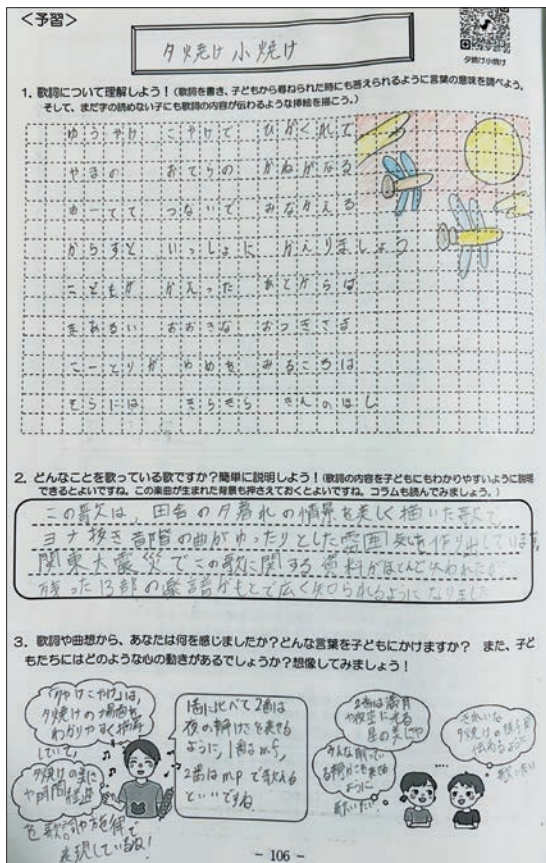 <予習>
夕焼け小焼け
夕焼け小焼け
1. 歌詞について理解しよう！(歌詞を書き、子どもから尋ねられた時にも答えられるように言葉の意味を調べよう。
そして、まだ字の読めない子にも歌詞の内容が伝わるような挿絵を描こう。)
ゆうやけ こやけで ひがくれて
やまの おてらの かねがなる
おーてて つないで みなかえる
からすと いっしょに かえりましょう
こどもが かえった あとからは
まあるい おおきな おつきさま
ことりが ゆめを みるころは
そらには きらきら きんのほし
2. どんなことを歌っている歌ですか？簡単に説明しよう！(歌詞の内容を子どもにもわかりやすいように説明
できるとよいですね。この楽曲が生まれた背景も押さえておくとよいですね。コラムも読んでみましょう。)
この歌は、田舎の夕暮れの情景を美しく描いた歌で
ヨナ抜き音階の曲がゆったりとした雰囲気を作り出しています
関東大震災でこの歌に関する資料がほとんど失われたが
残った13部の楽譜がもとで広く知られるようになりました
3. 歌詞や曲想から、あなたは何を感じましたか？どんな言葉を子どもにかけますか？ また、子ど
もたちにはどのような心の動きがあるでしょうか？想像してみましょう！
「夕やけこやけ」は、
夕焼けの場面を
わかりやすく描写
していて、
夕焼けの美しさ
や時間経過
を歌詞や旋律で
表現しているね！
1番に比べて2番は
夜の静けさを表せる
ように、1番はmf、
2番はmpで歌える
といいですね
2番は満月
や夜空に光る
星の美しさや
みんな眠ってい
る静かさを表せる
ように
歌いたい
きれいな
夕焼けの様子を
伝えるように
歌いたい
- 106 -